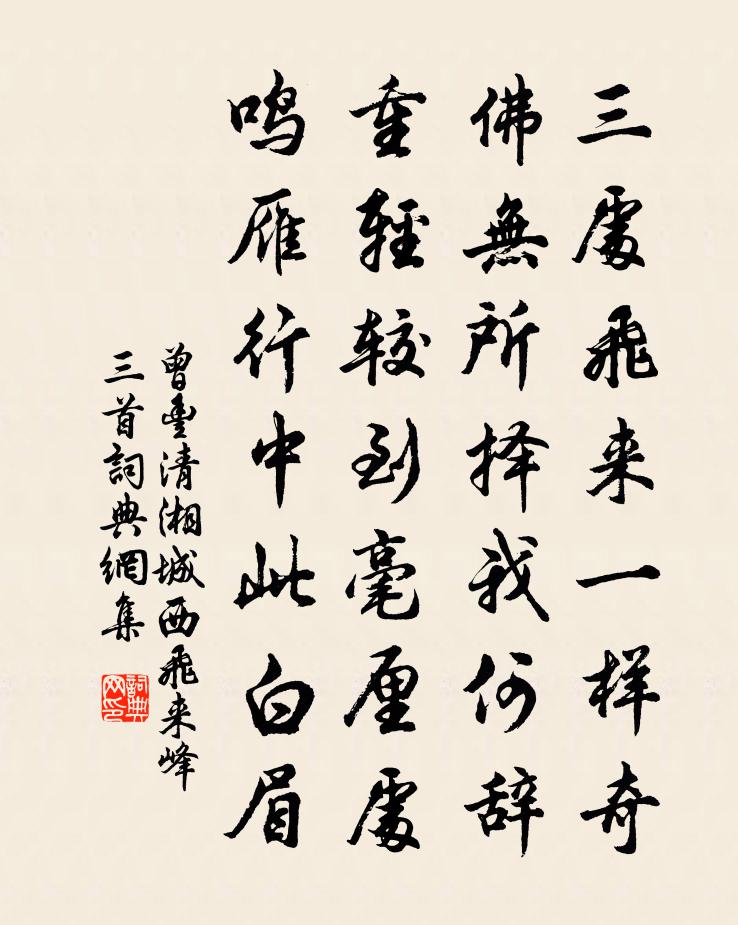 三處飛来一样奇
佛無所择我何辞
重輕较到毫厘處
鸣雁行中此白眉
曾豐清湘城西飛来峰
三首詞典網集
詞典网印